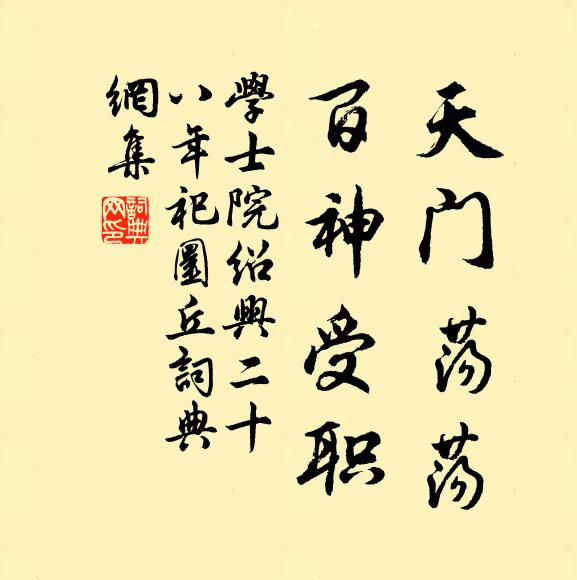 天门荡荡
百神受职
學士院绍興二十
八年祀圜丘詞典
網集
詞典
网印